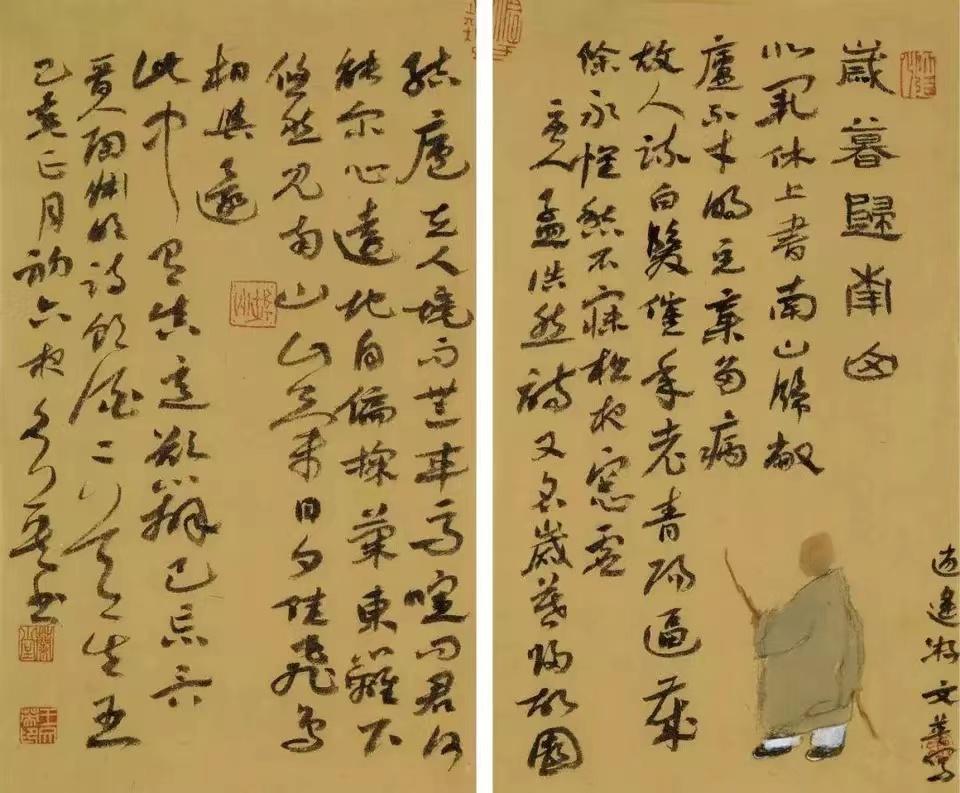 歲暮歸南山
北闕休上書南山歸敝
廬不才明主棄多病
故人疏白髮催年老青陽逼歲
除永懷愁不寐松夜窗虛
唐人孟浩然詩又名歲暮歸故園
逍遙游文蕙寫
結廬在人境而無車馬喧問君何
能爾心遠地自偏採菊東籬下
悠然見南山山氣日夕佳飛鳥
相與還
此中有真意欲辨已忘言
晉人陶淵明詩飲酒二十五
己亥正月初六夜書